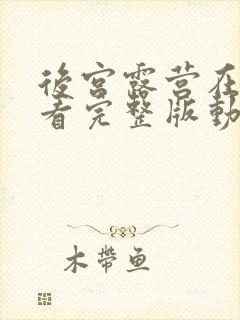 後宫露营在
看完整版動
木帶鱼